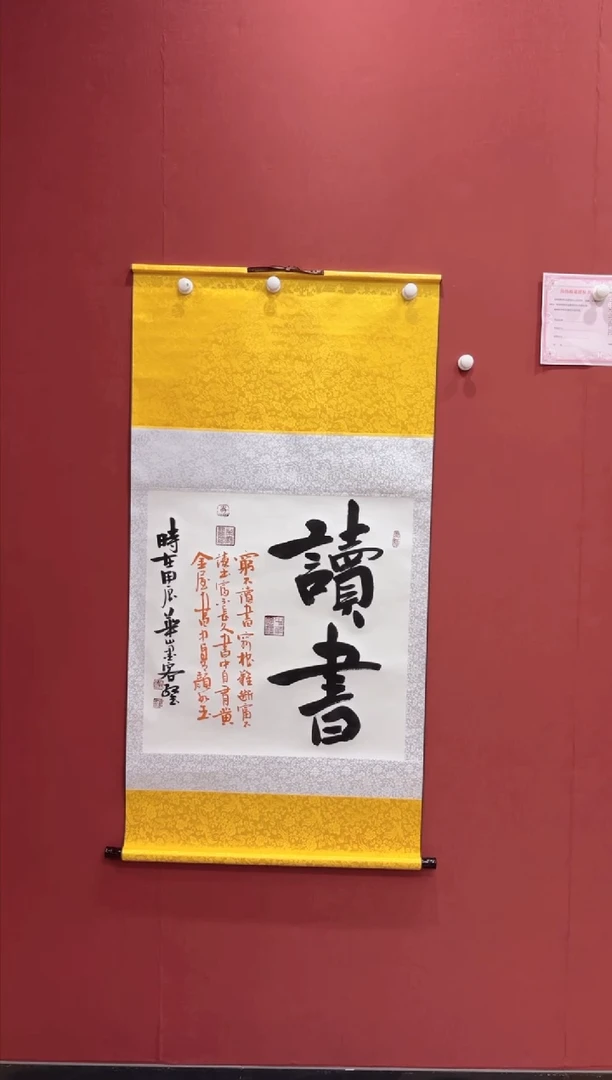 讀書
窮不讀書窮根難斷富不
讀書富不長久書中自有黃
金屋書中自有顏如玉
時在甲辰華山墨客堅